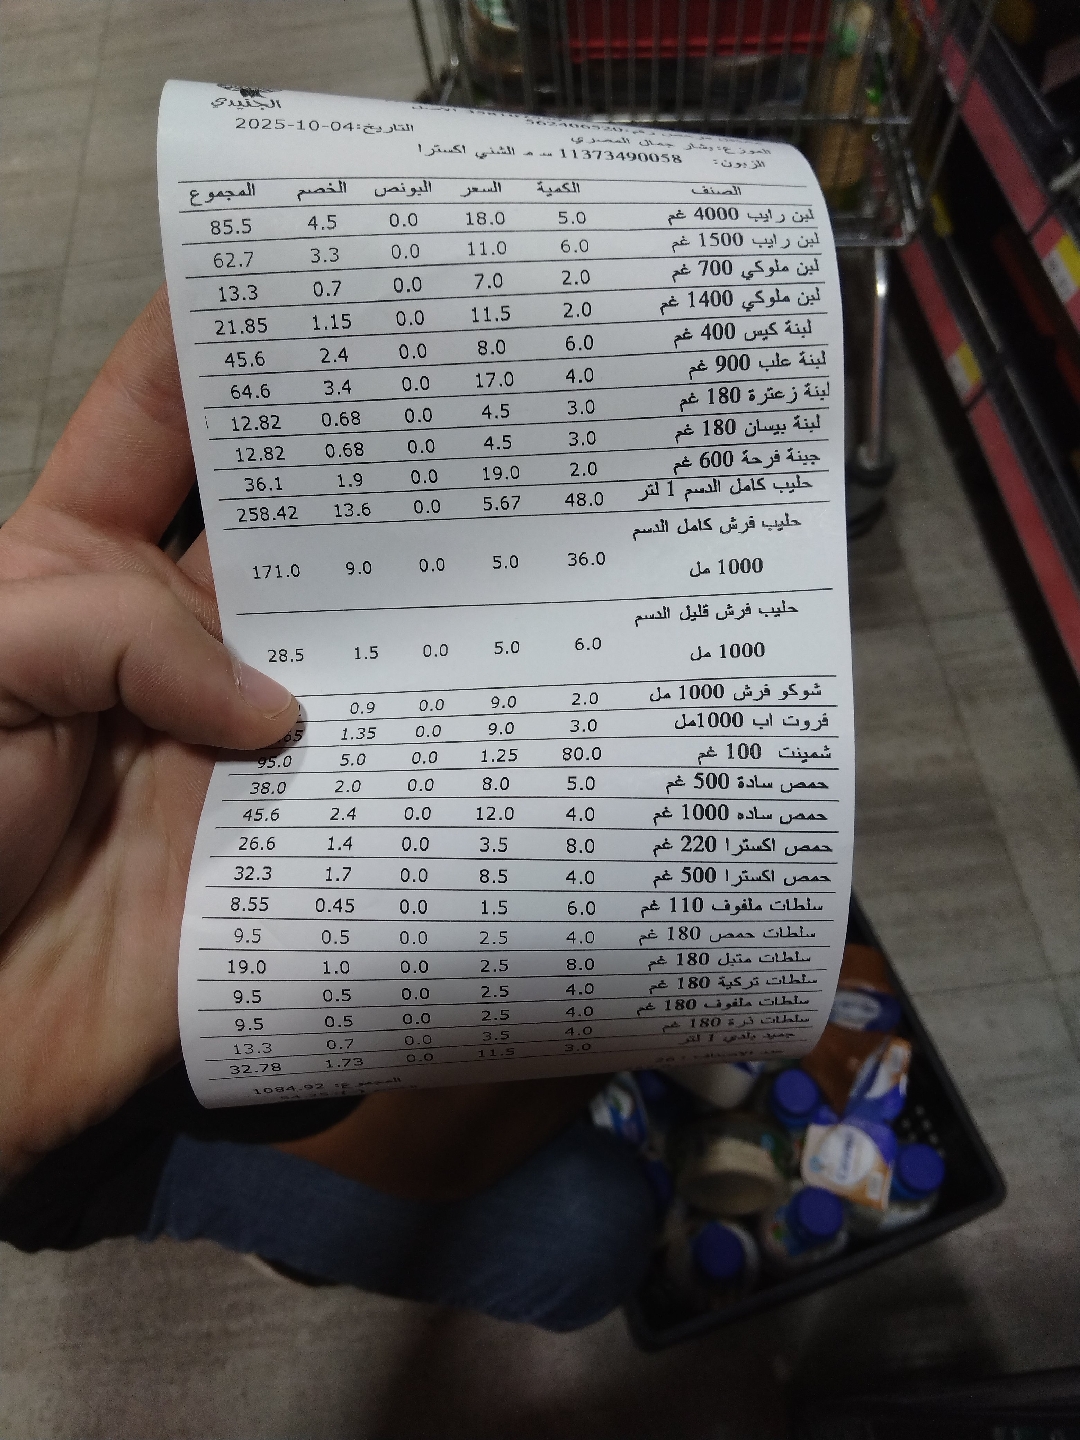 الجنيدي
562406520
التاريخ:04-10-2025
الموزع: بشار جمال المصري
الزبون: 11373490058 س م الشني اكسترا
الصنف الكمية السعر البونص الخصم المجموع
لبن رايب 4000 غم 5.0 18.0 0.0 4.5 85.5
لبن رايب 1500 غم 6.0 11.0 0.0 3.3 62.7
لبن ملوكي 700 غم 2.0 7.0 0.0 0.7 13.3
لبن ملوكي 1400 غم 2.0 11.5 0.0 1.15 21.85
لبنة كيس 400 غم 6.0 8.0 0.0 2.4 45.6
لبنة علب 900 غم 4.0 17.0 0.0 3.4 64.6
لبنة زعترة 180 غم 3.0 4.5 0.0 0.68 12.82
لبنة بيسان 180 غم 3.0 4.5 0.0 0.68 12.82
جبنة فرحة 600 غم 2.0 19.0 0.0 1.9 36.1
حليب كامل الدسم 1 لتر 48.0 5.67 0.0 13.6 258.42
حليب فرش كامل الدسم
1000 مل 36.0 5.0 0.0 9.0 171.0
حليب فرش قليل الدسم
1000 مل 6.0 5.0 0.0 1.5 28.5
شوكو فرش 1000 مل 2.0 9.0 0.0 0.9
فروت اب 1000مل 3.0 9.0 0.0 1.35
شمينت 100 غم 80.0 1.25 0.0 5.0 95.0
حمص سادة 500 غم 5.0 8.0 0.0 2.0 38.0
حمص ساده 1000 غم 4.0 12.0 0.0 2.4 45.6
حمص اكسترا 220 غم 8.0 3.5 0.0 1.4 26.6
حمص اكسترا 500 غم 4.0 8.5 0.0 1.7 32.3
سلطات ملفوف 110 غم 6.0 1.5 0.0 0.45 8.55
سلطات حمص 180 غم 4.0 2.5 0.0 0.5 9.5
سلطات متبل 180 غم 8.0 2.5 0.0 1.0 19.0
سلطات تركية 180 غم 4.0 2.5 0.0 0.5 9.5
سلطات ملفوف 180 غم 4.0 2.5 0.0 0.5 9.5
سلطات ذرة 180 غم 4.0 3.5 0.0 0.7 13.3
جميد بلدي 1 لتر 3.0 11.5 0.0 1.73 32.78
المجموع: 1084.92